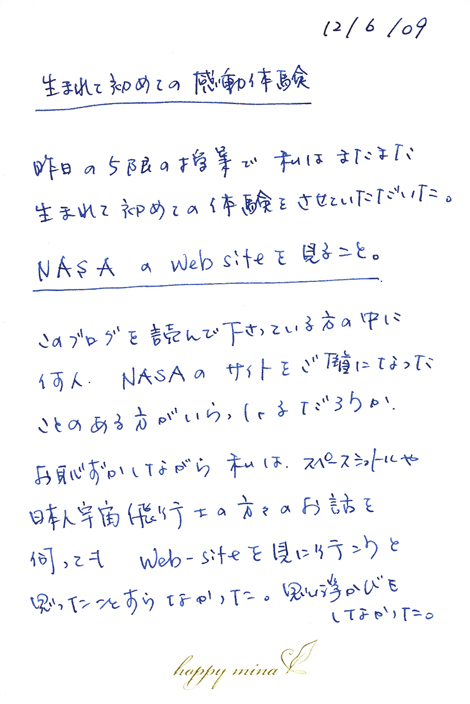 12/6/09
生まれて初めての感動体験
昨日の5限の授業で私はまたまた
生まれて初めての体験をさせていただいた。
NASAのWeb siteを見ること。
このブログを読んで下さっている方の中に
何人、NASAのサイトをご覧になった
ことのある方がいらっしゃるだろうか。
お恥ずかしながら私は、スペースシャトルや
日本人宇宙飛行士の方々のお話を
伺っても Web-siteを見に行こうと
思ったことすらなかった。思い浮かびも
しなかった。
happy mina